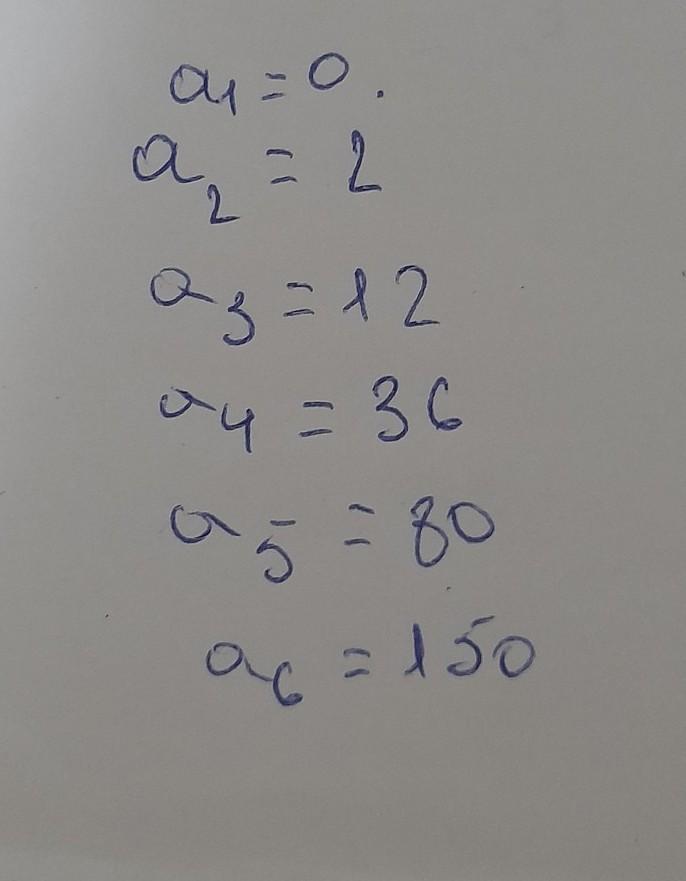 a₁ = 0.
a₂ = 2
a₃ = 12
a₄ = 36
a₅ = 80
a₆ = 150